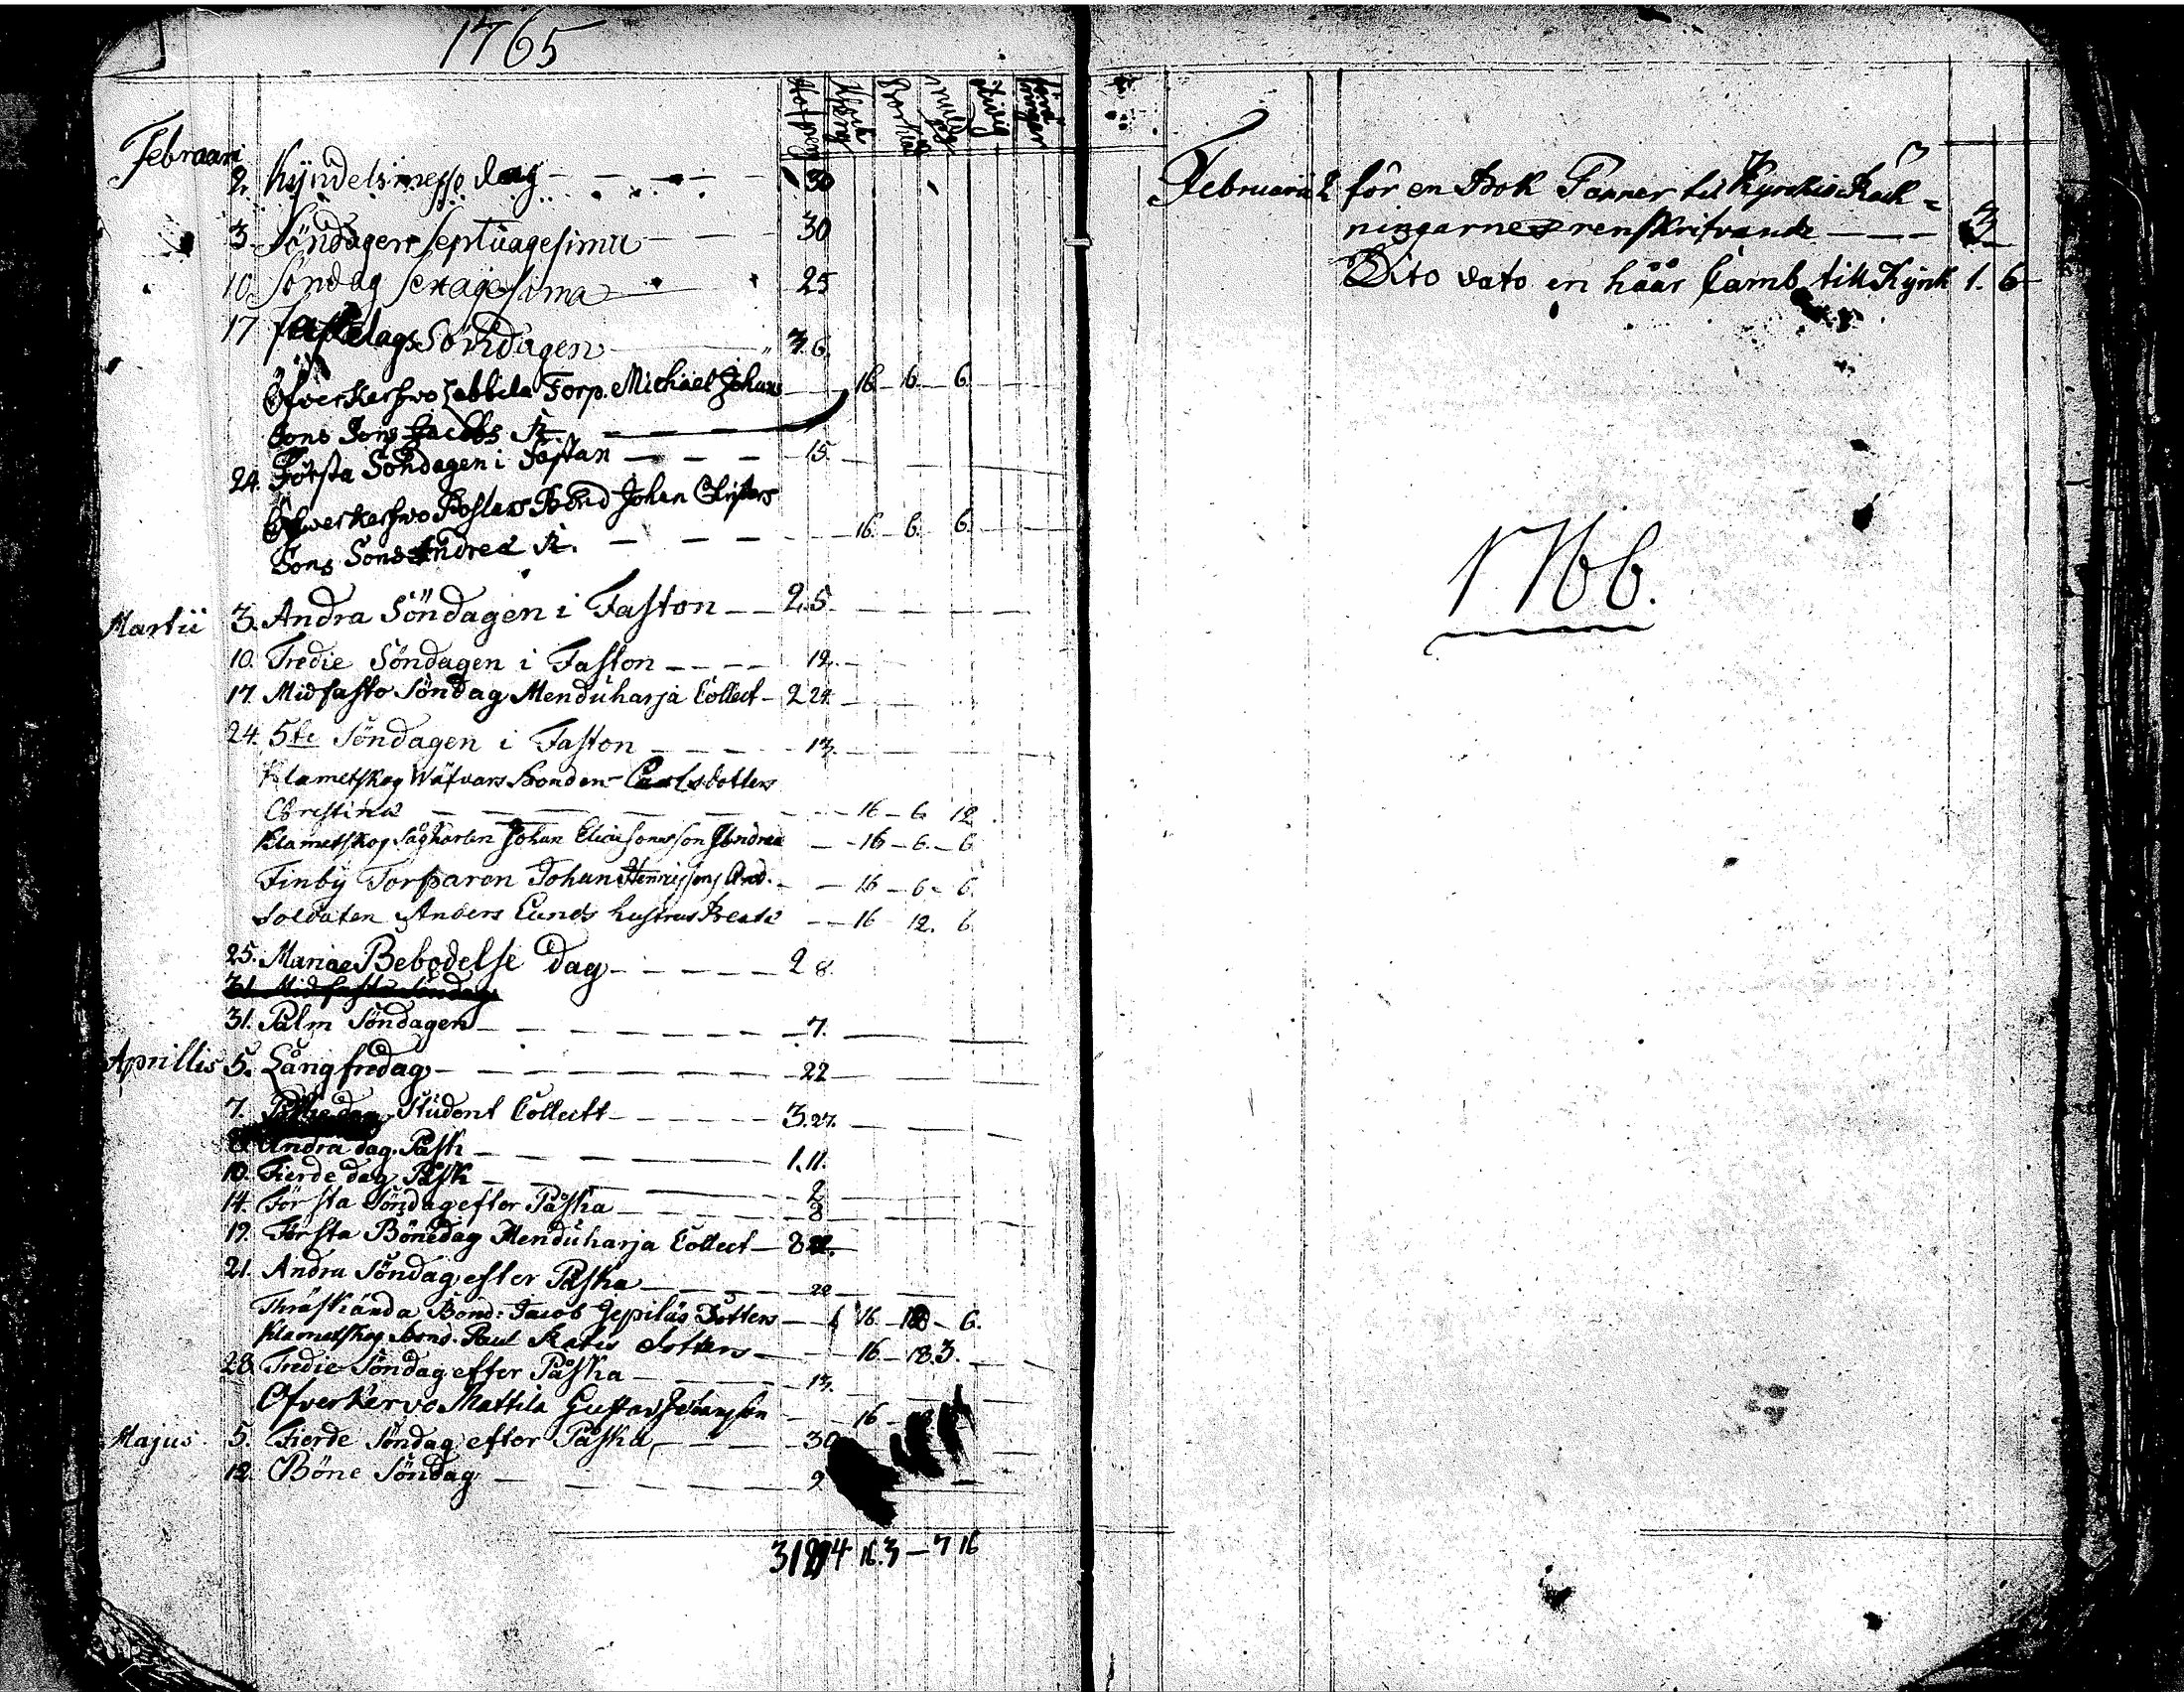 1765
Februari
2. Kyndelsmesso dag — 30
3. Söndagen Septuagesima — 30
10. Söndag Sexagesima — 25
17 fastelags Söndagen — 3. 6.
Öfverkerfwo Torp. Michael Johans — 16. — 6. — 6.
Sons Son Jacobs
24. Första Söndagen i Fastan — 15.
Öfwerkerfwo Bond Johan
Sons Son Andreä — 16. — 6. — 6.
Martii 3. Andra Söndagen i Faston — 2. 5.
10. Tredie Söndagen i Faston — 12.
17. Midfasto Söndag Menduharja Collect — 2 24.
24. 5te Söndagen i Faston — 13.
Klametskog Wäfvars Bonden Carlsdotters
Christina — 16 — 6. 12.
Klametskog Johan son Andreae — 16 — 6. — 6
Finby Torparen Johan And. — 16 — 6 — 6.
Soldaten Anders Lunds hustrus Beata — 16 12. 6.
25. Mariae Bebodelse Dag — 2 8.
31. Midfasto Söndag
31. Palm Söndagen — 7.
Aprillis 5. Långfredag — 22
7. Påskedag Student Collectt — 3. 27.
8 Andra dag Påsk — 1. 11.
10. Fierde dag Påsk — 2
14. Första Söndag efter Påska — 8
19. Första Bönedag Menduharja Collect — 8
21. Andra Söndag efter Påska — 22
Thräskända Bond: Jacob Dotters — 16. — — 6.
Klametskog Bond. Paul dotters — 16 — 18 3.
28 Tredie Söndag efter Påska — 13.
Ofverkervo Mattila Gustav Johansson — 16 —
Majus 5. Fierde Söndag efter Påska — 30
12. Böne Söndag — 9
16. 3 — 7 16
Februarii 2 för en Bok Papper til Kyrckio Räck =
ningarnes renskrifvande — 3
Dito dato en håår Camb till Kyrk 1. 6
1766.